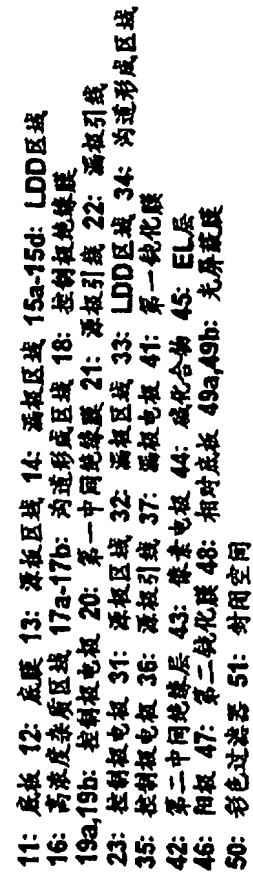 11: 底板 12: 底膜 13: 源极区域 14: 漏极区域 15a-15d: LDD区域
16: 高浓度杂质区域 17a-17b: 沟道形成区域 18: 控制极绝缘膜
19a,19b: 控制极电极 20: 第一中间绝缘膜 21: 源极引线 22: 漏极引线
23: 控制极电极 31: 源极区域 32: 漏极区域 33: LDD区域 34: 沟道形成区域
35: 控制极电极 36: 源极引线 37: 漏极电极 41: 第一钝化膜
42: 第二中间绝缘层 43: 像素电极 44: 硫化合物 45: EL层
46: 阳极 47: 第二钝化膜 48: 相对底板 49a,49b: 光屏蔽膜
50: 彩色过滤器 51: 封闭空间